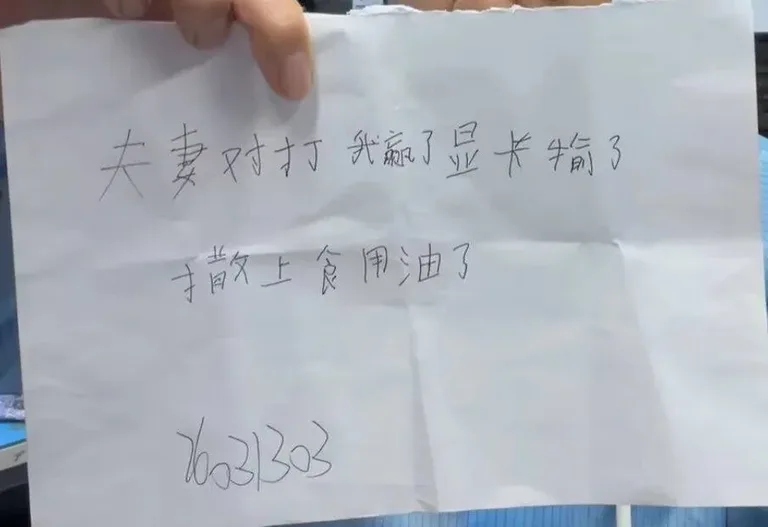 夫妻对打 我赢了显卡输了
撒上食用油了
26031303